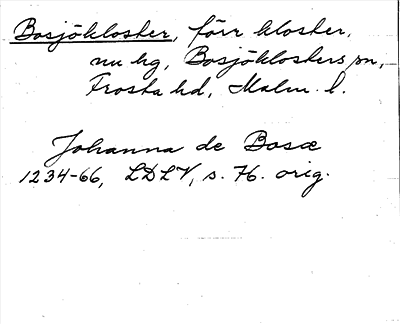 Bosjökloster, förr kloster,
nu hg, Bosjöklosters sn,
Frosta hd, Malm. l.
Johanna de Bosæ
1234-66, LDLV, s. 76. orig.